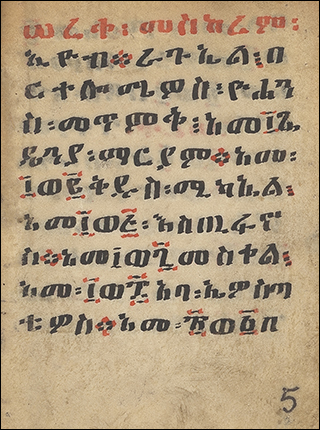 ሠረቀ፡መስከረም፡
ኢዮብ፨ራጉኤል፡በ
ርተሎሜዎስ፡ዮሐን
ስ፡መጥምቅ፡አመ፲ጼ
ዴንያ፡ማርያም፨አመ፡
፲ወ፪ቅዱስ፡ሚካኤል፡
አመ፲ወ፭፡እስጢፋኖ
ስ፨አመ፡፲ወ፯መስቀል፡
አመ፡፲ወ፰አባ፡ኤዎስጣ
ቴዎስ፨አመ፡፳ወ፩በ
5